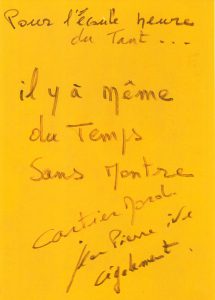 Pour l'Écoute heure
du Tant...
il y à même
du Temps
Sans Montre
Cartier
Jean Pierre
également.